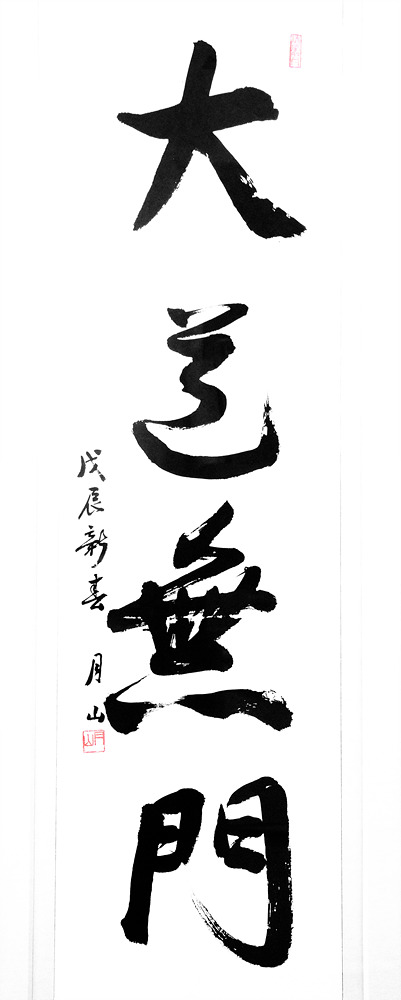 大道無門
戊辰新春 月山